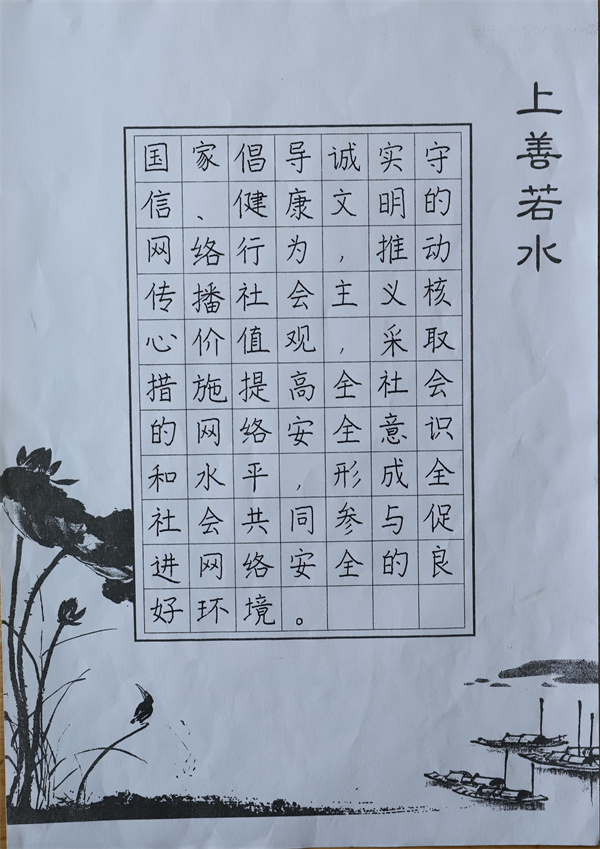 上善若水
国家倡导诚实守
信、健康文明的
网络行为，推动
传播社会主义核
心价值观，采取
措施提高全社会
的网络安全意识
和水平，形成全
社会共同参与促
进网络安全的良
好环境。